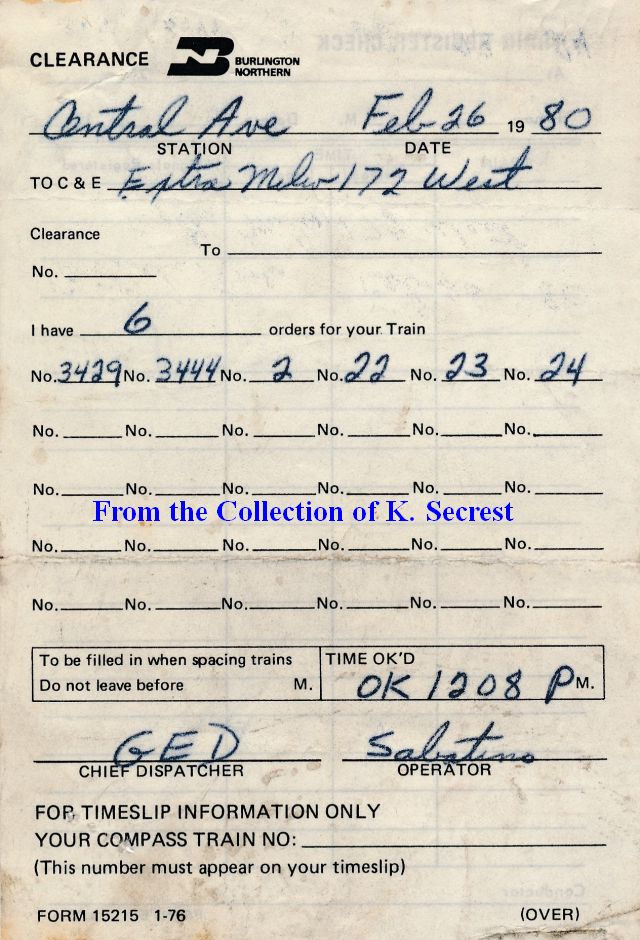 CLEARANCE BN BURLINGTON NORTHERN
Central Ave Feb 26 1980
STATION DATE
TO C & E Extra Milw 172 West
Clearance
To
No.
I have 6 orders for your Train
No. 3429 No. 3444 No. 2 No. 22 No. 23 No. 24
No. No. No. No. No. No.
No. No. No. No. No. No.
From the Collection of K. Secrest
No. No. No. No. No. No.
No. No. No. No. No. No.
To be filled in when spacing trains TIME OK'D
Do not leave before M. OK 1208 P M.
GED Sabatino
CHIEF DISPATCHER OPERATOR
FOR TIMESLIP INFORMATION ONLY
YOUR COMPASS TRAIN NO:
(This number must appear on your timeslip)
FORM 15215 1-76 (OVER)